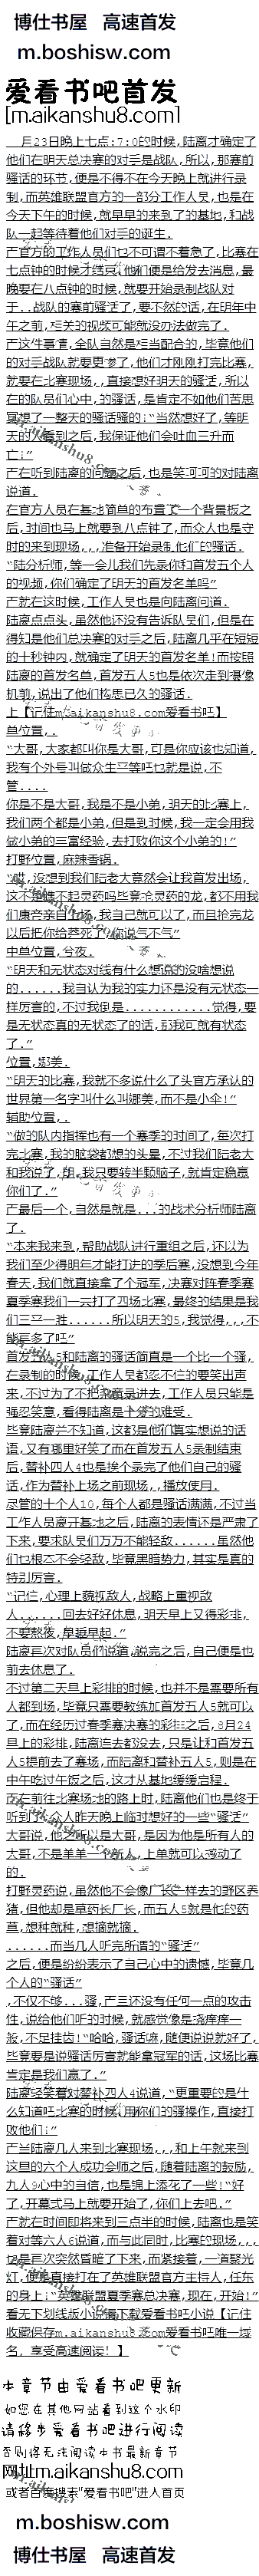 博仕书屋 高速首发
m.boshisw.com
爱看书吧首发
[m.aikanshu8.com]
月23日晚上七点:7:0的时候,陆离才确定了
他们在明天总决赛的对手是战队,所以,那赛前
骚话的环节,便是不得不在今天晚上就进行录
制,而英雄联盟官方的一部分工作人员,也是在
今天下午的时候,就早早的来到了的基地,和战
队一起等待着他们对手的诞生.
七点钟的时候才结束,他们便是给发去消息,最
晚要在八点钟的时候,就要开始录制战队对
于..战队的赛前骚话了,要不然的话,在明年中
午之前,相关的视频可能就没办法做完了.
的对手战队就要更惨了,他们才刚刚打完比赛,
就要在北赛现场,,直接想好明天的骚话,所以
在的队员们心中,的骚话,是肯定不如他们苦思
冥想了一整天的骚话骚的!“当然想好了,等明
天的人看到之后,我保证他们会吐血三升而
亡!”
说道.
在官方人员在基地简单的布置了一个背景板之
后,时间也马上就要到八点钟了,而众人也是守
时的来到现场,,,准备开始录制他们的骚话.
“陆分析师,等一会儿我们先录你和首发五个人
的视频,你们确定了明天的首发名单吗”
陆离点点头,虽然他还没有告诉队员们,但是在
得知是他们总决赛的对手之后,陆离几乎在短短
的十秒钟内,就确定了明天的首发名单!而按照
陆离的首发名单,首发五人5也是依次走到摄像
机前,说出了他们构思已久的骚话.
上【下往m.aikanshu8.com爱看书吧】
单位置,.
“大哥,大家都叫你是大哥,可是你应该也知道,
我有个外号叫做众生平等吧也就是说,不
管....
你是不是大哥,我是不是小弟,明天的比赛上,
我们两个都是小弟,但是到时候,我一定会用我
做小弟的丰富经验,去打败你这个小弟的!”
打野位置,麻辣香锅.
“哎,没想到我们陆老大竟然会让我首发出场,
这不是瞧不起灵药吗毕竟抢灵药的龙,都不用我
们康帝亲自上场,我自己就可以了,而且抢完龙
以后把你给葬死了,你说气不气”
中单位置,兮夜.
“明天和无状态对线有什么想说的没啥想说
的......我自认为我的实力还是没有无状态一
样厉害的,不过我倒是............觉得,要
是无状态真的无状态了的话,那我可就有状态
了.”
位置,娜美.
“明天的比赛,我就不多说什么了头官方承认的
世界第一名字叫什么叫娜美,而不是小伞!”
辅助位置,.
“做的队内指挥也有一个赛季的时间了,每次打
完比赛,我的脑袋都想的头晕,不过我们陆老大
和我说了,明,我只要转半颗脑子,就肯定稳赢
你们了.”
了.
“本来我来到,帮助战队进行重组之后,还以为
我们至少得明年才能打进的季后赛,没想到今年
春天,我们就直接拿了个冠军,决赛对阵春季赛
夏季赛我们一共打了四场比赛,最终的结果是我
们三平一胜......所以明天的5,我觉得,,,不
能再多了吧”
首发五人5和陆离的骚话简直是一个比一个骚,
在录制的时候,工作人员都忍不住的要笑出声
来,不过为了不把杂音录进去,工作人员只能是
强忍笑意,看得陆离是十分的难受.
毕竟陆离并不知道,这都是他们真实想说的话
语,又有哪里好笑了而在首发五人5录制结束
后,替补四人4也是挨个录完了他们自己的骚
话,作为替补上场之前现场,,播放使用.
尽管的十个人10,每个人都是骚话满满,不过当
工作人员离开基地之后,陆离的表情还是严肃了
下来,要求队员们万万不能轻敌......虽然他
们也根本不会轻敌,毕竟黑暗势力,其实是真的
特别厉害.
“记住,心理上藐视敌人,战略上重视敌
人......回去好好休息,明天早上又得彩排,
不要熬夜,早睡早起.”
陆离再次对队员们说道,说完之后,自己便是也
前去休息了.
不过第二天早上彩排的时候,也并不是需要所有
人都到场,毕竟只需要教练加首发五人5就可以
了,而在经历过春季赛决赛的彩排之后,8月24
早上的彩排,陆离连去都没去,只是让和首发五
人5提前去了赛场,而陆离和替补五人5,则是在
中午吃过午饭之后,这才从基地缓缓启程.
大哥说,他之所以是大哥,是因为他是所有人的
大哥,不是单单一个的人,上单就可以撼动了
的.
打野灵药说,虽然他不会像厂长一样去的野区养
猪,但他却是草药长厂长,而五人5就是他的药
草,想种就种,想摘就摘.
......而当几人听完所谓的“骚话”
之后,便是纷纷表示了自己心中的遗憾,毕竟几
个人的“骚话”
性,说给他们听的时候,就感觉像是挠痒痒一
般,不足挂齿!“哈哈,骚话嘛,随便说说就好了,
毕竟要是说骚话厉害就能拿冠军的话,这场比赛
肯定是我们赢了.”
陆离轻笑着对替补四人4说道,“更重要的是什
么知道吗比赛的时候,用你们的骚操作,直接打
败他们!”
这里的六个人成功会师之后,随着陆离的鼓励,
九人9心中的自信,也是锦上添花了一些!“好
了,开幕式马上就要开始了,你们上去吧.”
着对等六人6说道,而与此同时,比赛的现场,,,
也是再次突然昏暗了下来,而紧接着,一道聚光
灯,便是直接打在了英雄联盟官方主持人,任东
的身上!“英雄联盟夏季赛总决赛,现在,开始!”
看无下划线版小说请下载爱看书吧小说【记住
收藏保存m.aikanshu8.com爱看书吧唯一域
名, 享受高速阅读! 】
本章节由爱看书吧更新
如您在其他网站看到这个水印
请移步爱看书吧进行阅读
否则将无法阅读本书最新章节
网址m.aikanshu8.com
或者百度搜索“爱看书吧”进入首页
m.boshisw.com
博仕书屋 高速首发